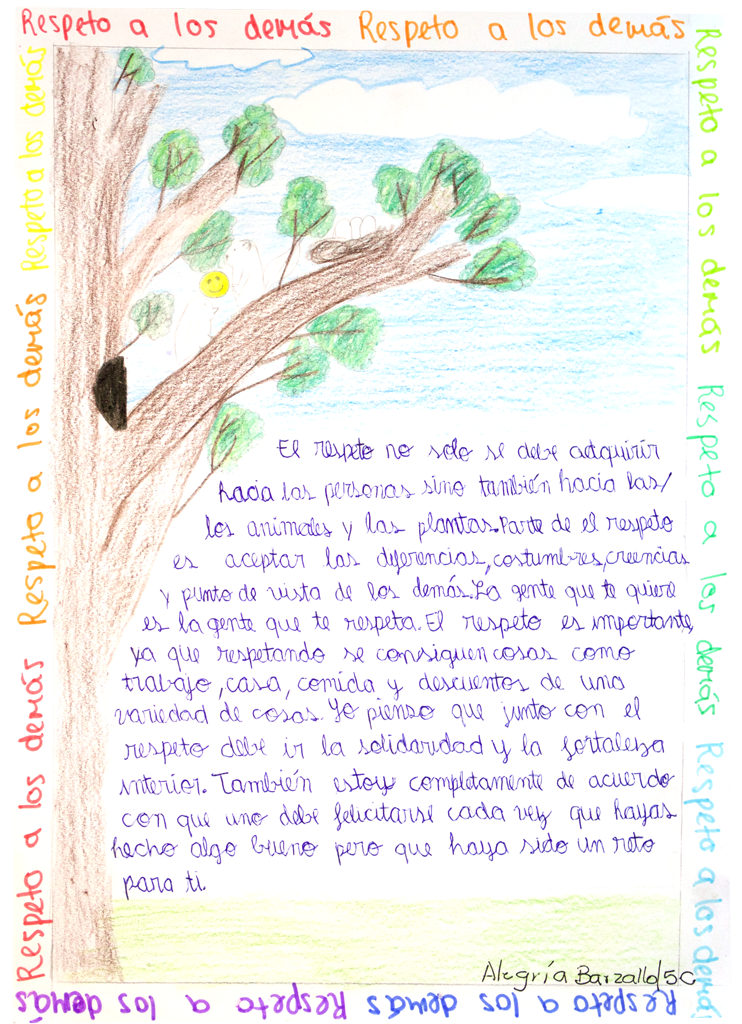 Respeto a los demás Respeto a los demás
Respeto a los demás Respeto a los demás Respeto a los demás
Respeto a los demás
Respeto a los demás
Respeto a los demás
El respeto no solo se debe adquirir
hacia las personas sino también hacia las/
los animales y las plantas. Parte de el respeto
es aceptar las diferencias, costumbres, creencias
y punto de vista de los demás. La gente que te quiere
es la gente que te respeta. El respeto es importante,
ya que respetando se consiguen cosas como
trabajo, casa, comida y descuentos de una
variedad de cosas. Yo pienso que junto con el
respeto debe ir la solidaridad y la fortaleza
interior. También estoy completamente de acuerdo
con que uno debe felicitarse cada vez que hayas
hecho algo bueno pero que haya sido un reto
para ti.
Alegría Barzallo/5C
Respeto a los demás Respeto a los demás